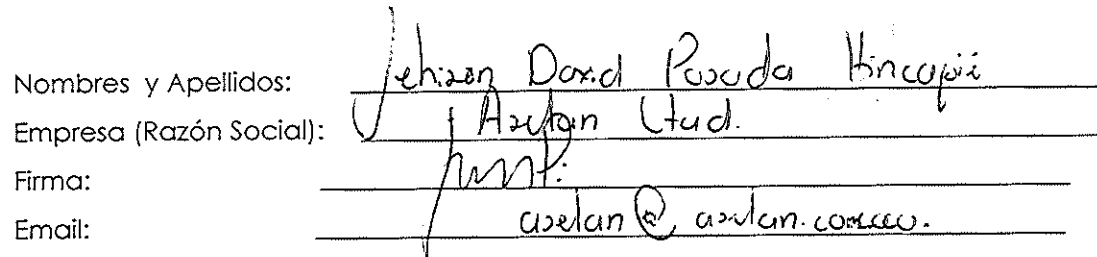 Nombres y Apellidos: Jehison David Posada Hincapié
Empresa (Razón Social): Aselan Ltud.
Firma:
Email: aselan@aselan.com.co.